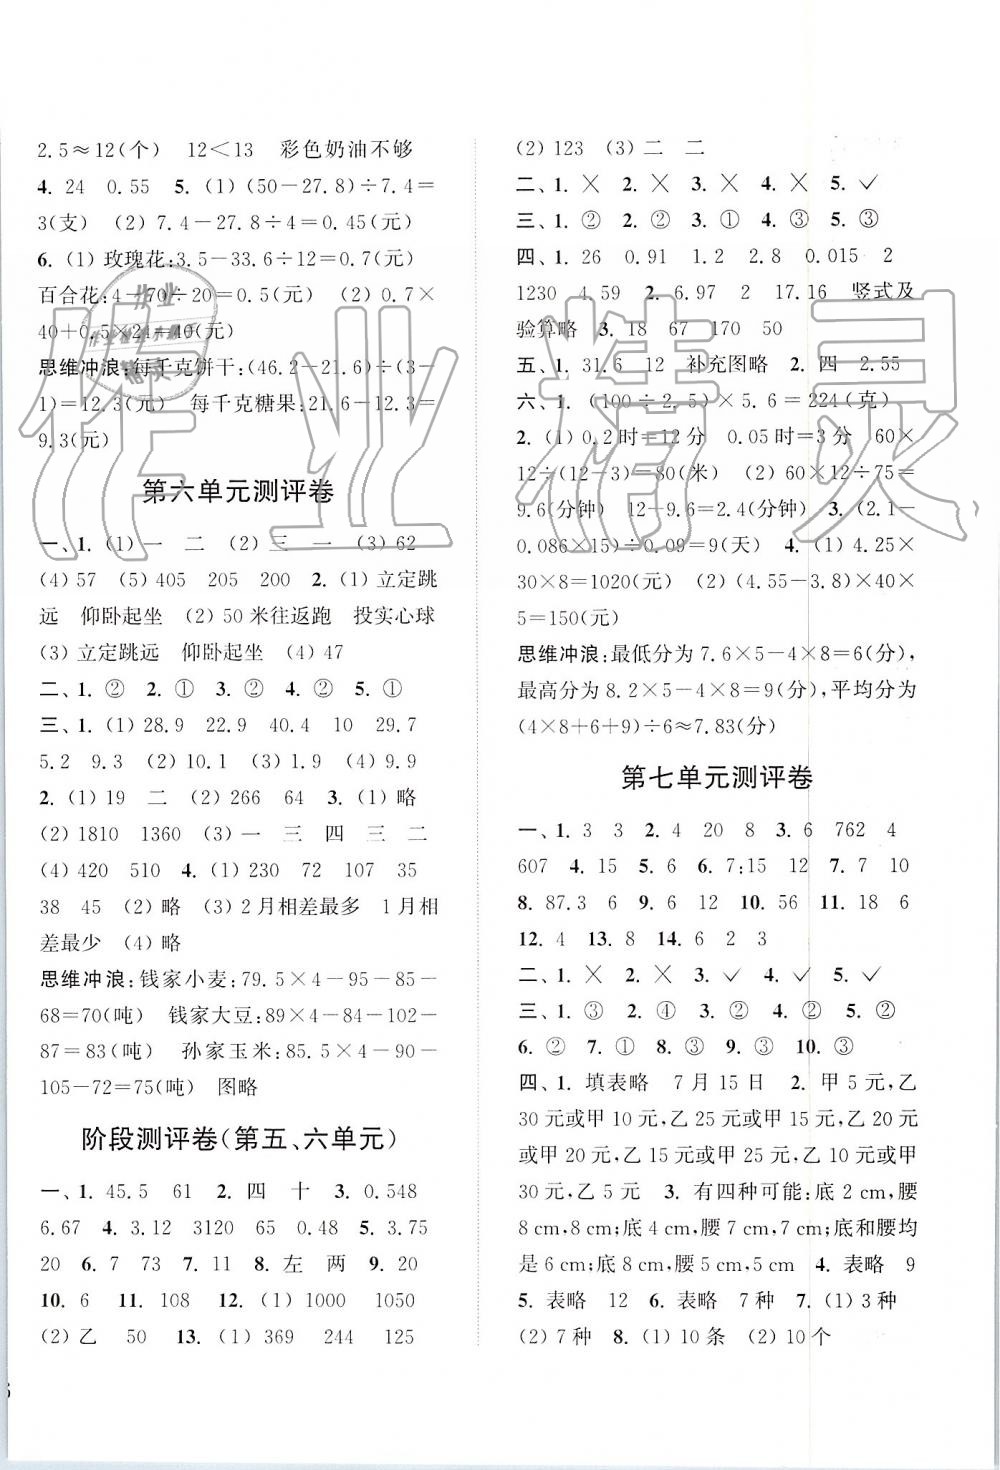 2.5≈12(个) 12<13 彩色奶油不够
4. 24 0.55 5. (1)(50-27.8)÷7.4=
3(支) (2)7.4-27.8÷4=0.45(元)
6. (1)玫瑰花:3.5-33.6÷12=0.7(元)
百合花:4-70÷20=0.5(元) (2)0.7×
40+0.5×24=40(元)
思维冲浪:每千克饼干:(46.2-21.6)÷(3-
1)=12.3(元) 每千克糖果:21.6-12.3=
9.3(元)
第六单元测评卷
一、1. (1)一 二 (2)三 一 (3)62
(4)57 (5)405 205 200 2. (1)立定跳
远 仰卧起坐 (2)50 米往返跑 投实心球
(3)立定跳远 仰卧起坐 (4)47
二、1. ② 2. ① 3. ② 4. ② 5. ①
三、1. (1)28.9 22.9 40.4 10 29.7
5.2 9.3 (2)10.1 (3)1.9 (4)9.9
2. (1)19 二 (2)266 64 3. (1)略
(2)1810 1360 (3)一 三 四 三 二
(4)420 510 4. (1)230 72 107 35
38 45 (2)略 (3)2月相差最多 1月相
差最少 (4)略
思维冲浪:钱家小麦:79.5×4-95-85-
68=70(吨) 钱家大豆:89×4-84-102-
87=83(吨) 孙家玉米:85.5×4-90-
105-72=75(吨) 图略
阶段测评卷(第五、六单元)
一、1. 45.5 61 2. 四 十 3. 0.548
6.67 4. 3.12 3120 65 0.48 5. 3.75
20 6. 7 73 7. 11 8. 左 两 9. 20
10. 6 11. 108 12. (1)1000 1050
(2)乙 50 13. (1)369 244 125
(2)123 (3)二 二
二、1. × 2. × 3. × 4. × 5. ✓
三、1. ② 2. ② 3. ① 4. ③ 5. ③
四、1. 26 0.91 1.2 2.8 0.015 2
1230 4.59 2. 6.97 2 17.16 竖式及
验算略 3. 18 67 170 50
五、1. 31.6 12 补充图略 2. 四 2.55
六、1. (100÷2.5)×5.6=224(克)
2. (1)0.2时=12分 0.05时=3分 60×
12÷(12-3)=80(米) (2)60×12÷75=
9.6(分钟) 12-9.6=2.4(分钟) 3. (2.1-
0.086×15)÷0.09=9(天) 4. (1)4.25×
30×8=1020(元) (2)(4.55-3.8)×40×
5=150(元)
思维冲浪:最低分为 7.6×5-4×8=6(分),
最高分为 8.2×5-4×8=9(分),平均分为
(4×8+6+9)÷6≈7.83(分)
第七单元测评卷
一、1. 3 3 2. 4 20 8 3. 6 762 4
607 4. 15 5. 6 6. 7:15 12 7. 7 10
8. 87.3 6 9. 6 12 10. 56 11. 18 6
12. 4 13. 8 14. 6 2 3
二、1. × 2. × 3. ✓ 4. ✓ 5. ✓
三、1. ③ 2. ④ 3. ② 4. ② 5. ②
6. ② 7. ① 8. ③ 9. ③ 10. ③
四、1. 填表略 7月15日 2. 甲5元,乙
30元或甲10元,乙25元或甲15元,乙20元
或甲20元,乙15元或甲25元,乙10元或甲
30元,乙5元 3. 有四种可能:底2 cm,腰
8 cm,8 cm;底4 cm,腰7 cm,7 cm;底和腰均
是6 cm;底8 cm,腰5 cm,5 cm 4. 表略 9
5. 表略 12 6. 表略 7种 7. (1)3种
(2)7种 8. (1)10条 (2)10个
作业精灵